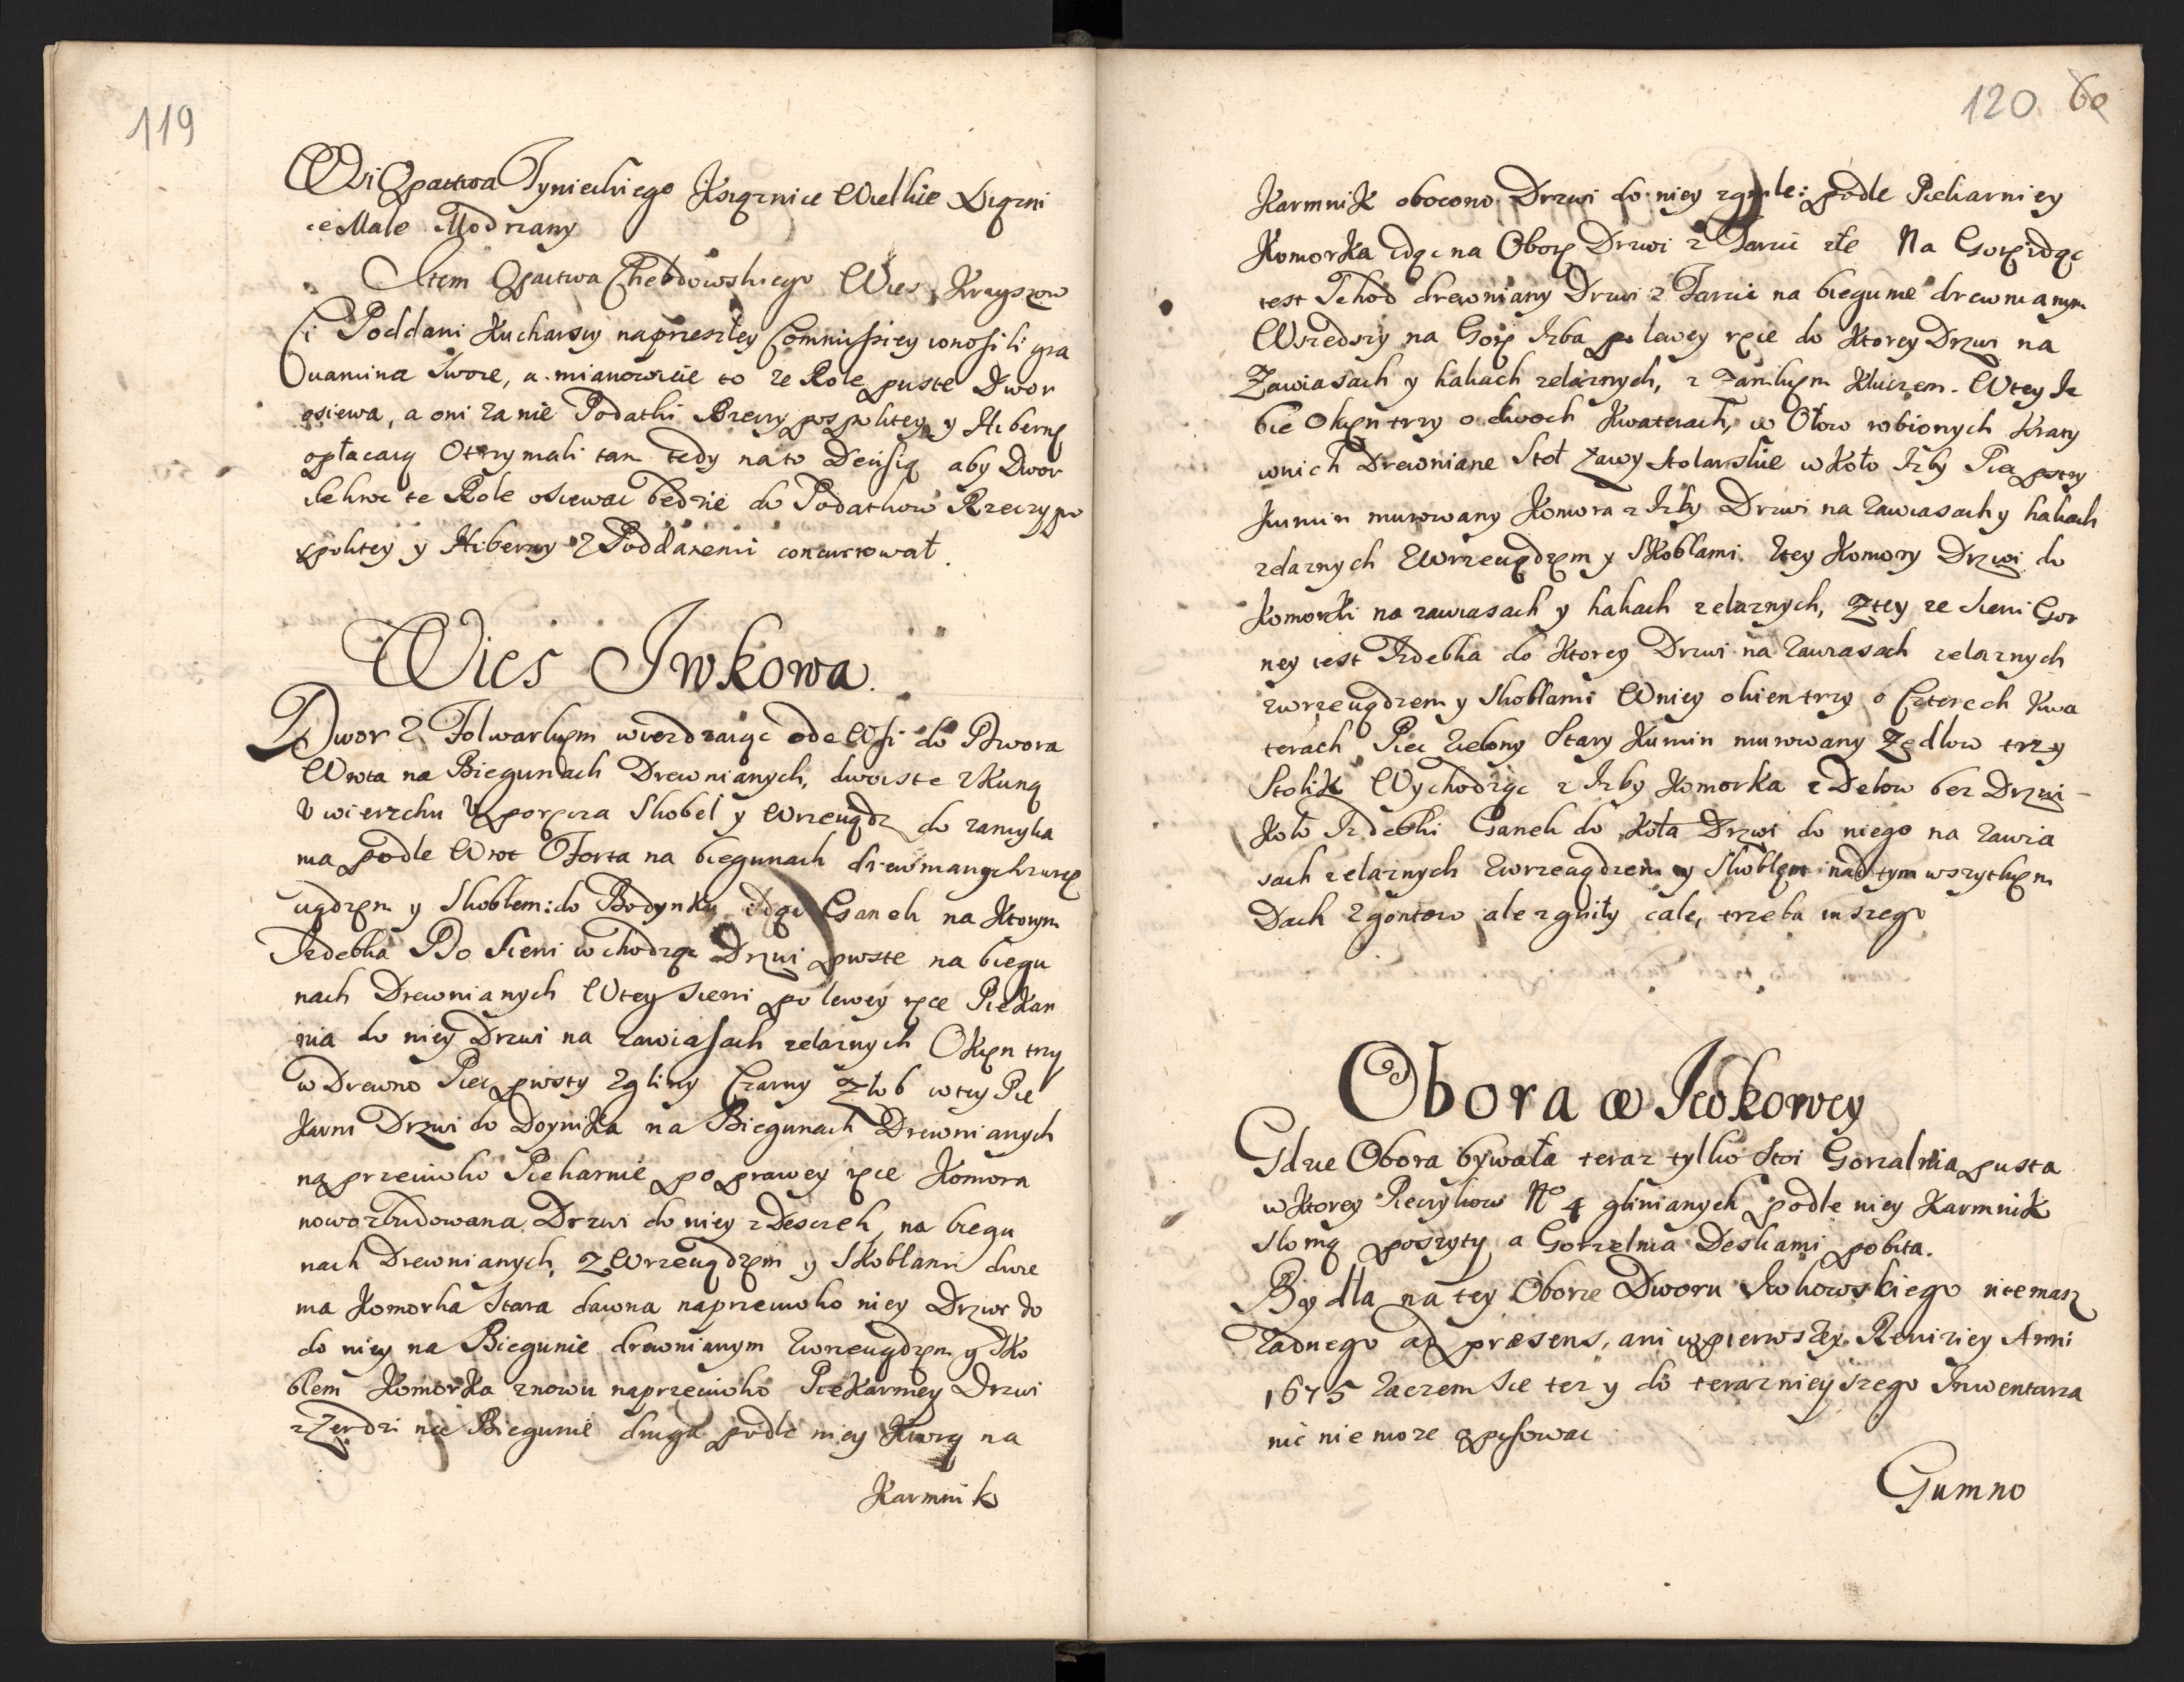 119
Wsi Opactwa Tynieckiego Xsiąznice Wielkie Xiązni
ce Małe Modrzany
Item Opactwa Chebdowskiego Wies Kryszow
Ci Poddani Kucharscy na przeszłey Commissiey wnosili gra
uamina swoie, a mianowicie to ze Role puste Dwor
osiewa, a oni za nie Podatki Rzeczypospolitey y Hiberny
opłacaią Otrzymali tam tedy na to Decisią aby Dwor
te Role osiewac będzie do Podatkow Rzeczypo
spolitey y Hiberny z Poddanemi concurrował.
Wies Iwkowa.
Dwor z Folwarkiem wiezdzaiąc ode Wsi do Dwora
Wrota na Biegunach Drewnianych, dwoiste z Kuną
v wierzchu V poręcza Skobel y Wrzeuądz do zamyka
nia podle Wrot Forta na biegunach drewnianych zwrze
uądzem y Skoblem: do Bodynku idąc Ganek na Ktorym
Izdebka Do Sieni wchodząc Drzwi proste na biegu
nach Drewnianych W tey Sieni po lewey ręce Piekar
nia do niey Drzwi na zawiasach zelaznych Okien trzy
w Drewno Piec prosty z gliny Czarny Zlob w tey Pie
karni Drzwi do Doynika na Biegunach Drewnianych
na przeciwko Piekarnie po prawey ręce Komora
nowo zbudowana Drzwi do niey z Desczek, na biegu
nach Drewnianych, z Wrzeuądzem y Skoblami dwie
ma Komorka Stara dawna naprzeciwko niey Drzwi do
do niey na Biegunie drewnianym zwrzeuądzem y Sko
blem Komorka znowu naprzeciwko Piekarniey Drzwi
z Zerdzi na Biegunie druga podle niey Kurey na
Karmnik
120 60
Karmnik obocono Drzwi do niey zgniłe: podle Piekarniey
Komorka idąc na Oborę Drzwi z Tarcic złe Na Gorę idąc
iest Schod drewniany Drzwi z Tarcic na biegunie drewnianym
Wszedszy na Gorę Izba po lewey ręce do Ktorey Drzwi na
Zawiasach y hakach zelaznych, z Zamkiem Kluczem. W tey Iz
bie Okien trzy o dwoch Kwaterach, w Ołow robionych Kraty
w nich Drewniane Stoł Zawy Stolarskie w Koło Izby Piec pstry
Kumin murowany Komora z Izby Drzwi na zawiasach y hakach
zelaznych zWrzeuądzem y Skoblami. z tey Komory Drzwi do
Komorki na zawiasach y hakach zelaznych, z tey ze sieni Gor
ney iest Izdebka do Ktorey Drzwi na zawiasach zelaznych
zwrzeuądzem y Skoblami W niey okien trzy o Czterech Kwa
terach Piec zielony Stary Kumin murowany Zędlow trzy
Stolik Wychodząc z Izby Komorka z Delow bez Drzwi
Koło Izdebki Ganek do Koła Drzwi do niego na zawia
sach zelaznych zwrzeuądzem y Skoblem nad tym wszytkiem
Dach z gontow ale zgniły cale, trzeba inszego
Obora w Iwkowey
Gdzie Obora bywała teraz tylko Stoi Gorzalnia pusta
w Ktorey Piecykow No 4 glinianych podle niey Karmnik
słomą poszyty a Gorzelnia Deskami pobita.
Bydła na tey Oborze Dworu Iwkowskiego niemasz
zadnego ad præsens, ani w pierwszey Reuiziey Anni
1675 zaczem sie tez y do teraznieyszego Inwentarza
nic nie moze opisowac
Gumno